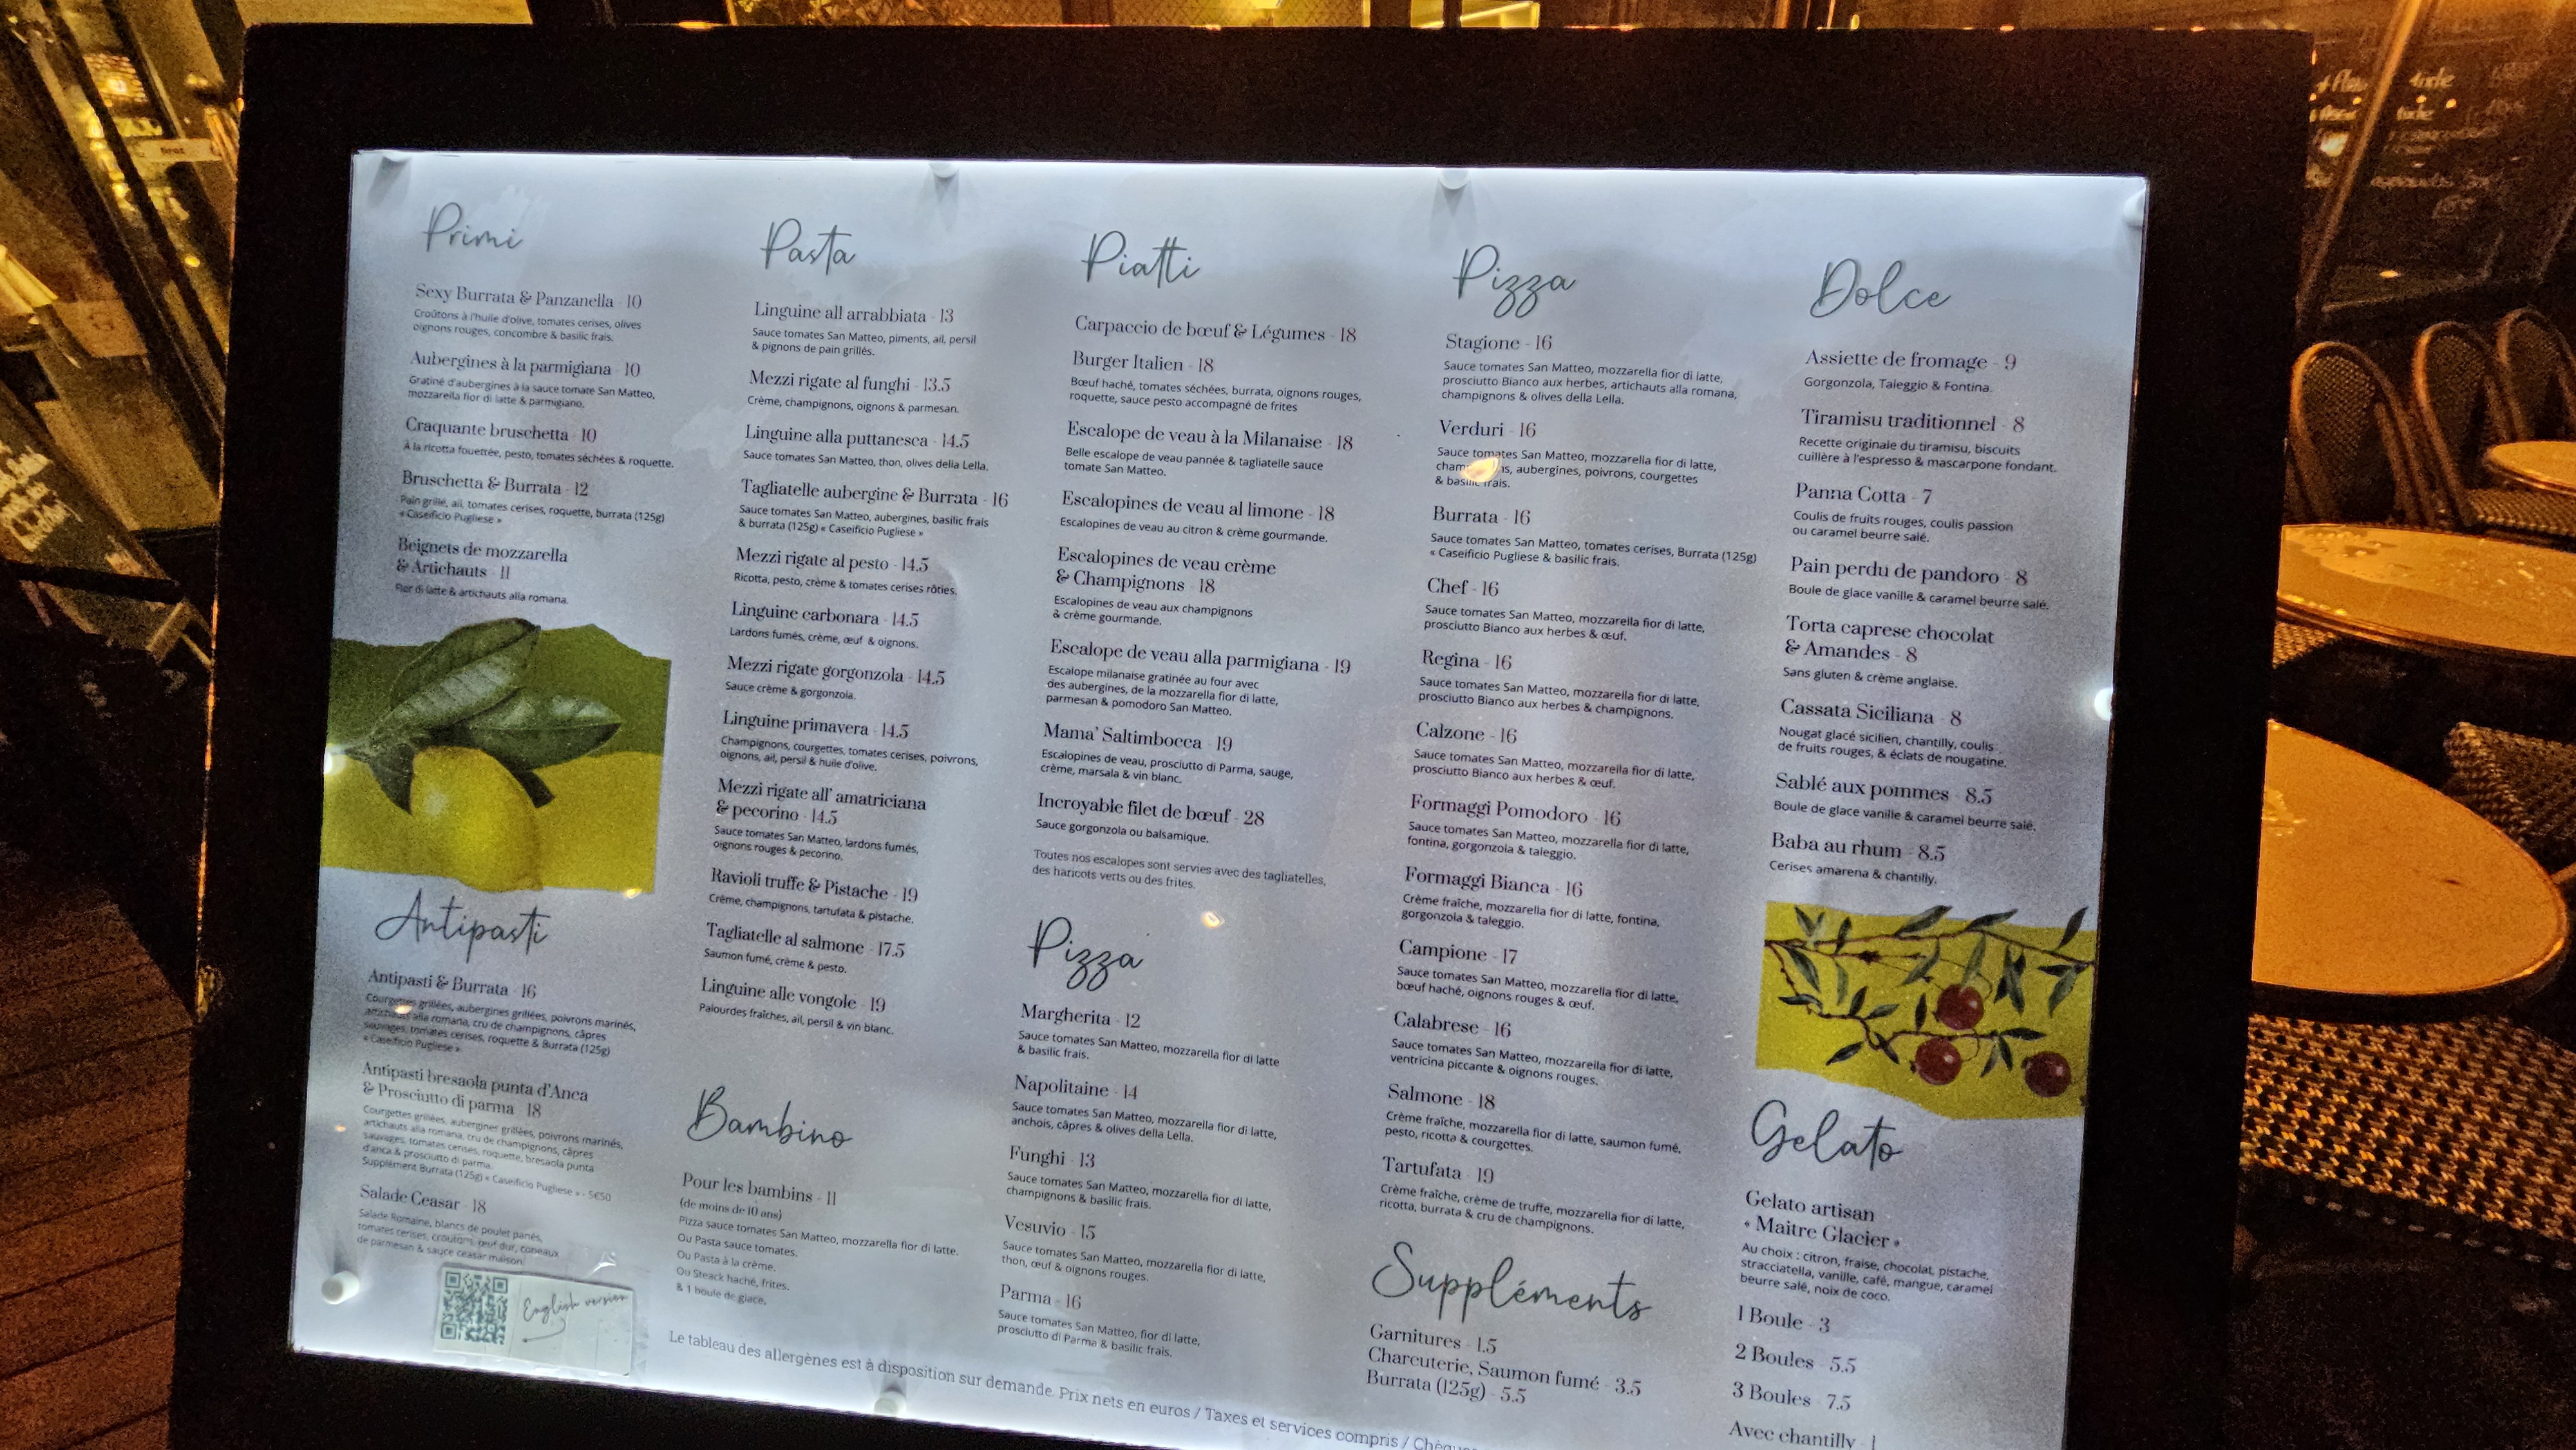 Primi
Sexy Burrata & Panzanella - 10
Croûtons à l'huile d'olive, tomates cerises, olives
oignons rouges, concombre & basilic frais.
Aubergines à la parmigiana - 10
Gratiné d'aubergines à la sauce tomate San Matteo,
mozzarella fior di latte & parmigiano.
Craquante bruschetta - 10
À la ricotta fouettée, pesto, tomates séchées & roquette.
Bruschetta & Burrata - 12
Pain grillé, ail, tomates cerises, roquette, burrata (125g)
« Caseificio Pugliese »
Beignets de mozzarella
& Artichauts - 11
Fior di latte & artichauts alla romana.
Antipasti
Antipasti & Burrata - 16
Courgettes grillées, aubergines grillées, poivrons marinés,
artichauts alla romana, cru de champignons, câpres
sauvages, tomates cerises, roquette & Burrata (125g)
« Caseificio Pugliese »
Antipasti bresaola punta d'Anca
& Prosciutto di parma - 18
Courgettes grillées, aubergines grillées, poivrons marinés,
artichauts alla romana, cru de champignons, câpres
sauvages, tomates cerises, roquette, bresaola punta
d'anca & prosciutto di parma.
Supplément Burrata (125g) « Caseificio Pugliese » - 5€50
Salade Ceasar - 18
Salade Romaine, blancs de poulet panés,
tomates cerises, croutons, œuf dur, copeaux
de parmesan & sauce ceasar maison.
English version
Pasta
Linguine all arrabbiata - 13
Sauce tomates San Matteo, piments, ail, persil
& pignons de pain grillés.
Mezzi rigate al funghi - 13.5
Crème, champignons, oignons & parmesan.
Linguine alla puttanesca - 14.5
Sauce tomates San Matteo, thon, olives della Lella.
Tagliatelle aubergine & Burrata - 16
Sauce tomates San Matteo, aubergines, basilic frais
& burrata (125g) « Caseificio Pugliese »
Mezzi rigate al pesto - 14.5
Ricotta, pesto, crème & tomates cerises rôties.
Linguine carbonara - 14.5
Lardons fumés, crème, œuf & oignons.
Mezzi rigate gorgonzola - 14.5
Sauce crème & gorgonzola.
Linguine primavera - 14.5
Champignons, courgettes, tomates cerises, poivrons,
oignons, ail, persil & huile d'olive.
Mezzi rigate all' amatriciana
& pecorino - 14.5
Sauce tomates San Matteo, lardons fumés,
oignons rouges & pecorino.
Ravioli truffe & Pistache - 19
Crème, champignons, tartufata & pistache.
Tagliatelle al salmone - 17.5
Saumon fumé, crème & pesto.
Linguine alle vongole - 19
Palourdes fraîches, ail, persil & vin blanc.
Bambino
Pour les bambins - 11
(de moins de 10 ans)
Pizza sauce tomates San Matteo, mozzarella fior di latte.
Ou Pasta sauce tomates.
Ou Pasta à la crème.
Ou Steack haché, frites.
& 1 boule de glace.
Piatti
Carpaccio de bœuf & Légumes - 18
Burger Italien - 18
Bœuf haché, tomates séchées, burrata, oignons rouges,
roquette, sauce pesto accompagné de frites
Escalope de veau à la Milanaise - 18
Belle escalope de veau pannée & tagliatelle sauce
tomate San Matteo.
Escalopines de veau al limone - 18
Escalopines de veau au citron & crème gourmande.
Escalopines de veau crème
& Champignons - 18
Escalopines de veau aux champignons
& crème gourmande.
Escalope de veau alla parmigiana - 19
Escalope milanaise gratinée au four avec
des aubergines, de la mozzarella fior di latte,
parmesan & pomodoro San Matteo.
Mama' Saltimbocca - 19
Escalopines de veau, prosciutto di Parma, sauge,
crème, marsala & vin blanc.
Incroyable filet de bœuf - 28
Sauce gorgonzola ou balsamique.
Toutes nos escalopes sont servies avec des tagliatelles,
des haricots verts ou des frites.
Pizza
Margherita - 12
Sauce tomates San Matteo, mozzarella fior di latte
& basilic frais.
Napolitaine - 14
Sauce tomates San Matteo, mozzarella fior di latte,
anchois, câpres & olives della Lella.
Funghi - 13
Sauce tomates San Matteo, mozzarella fior di latte,
champignons & basilic frais.
Vesuvio - 15
Sauce tomates San Matteo, mozzarella fior di latte,
thon, œuf & oignons rouges.
Parma - 16
Sauce tomates San Matteo, fior di latte,
prosciutto di Parma & basilic frais.
Pizza
Stagione - 16
Sauce tomates San Matteo, mozzarella fior di latte,
prosciutto Bianco aux herbes, artichauts alla romana,
champignons & olives della Lella.
Verduri - 16
Sauce tomates San Matteo, mozzarella fior di latte,
aubergines, poivrons, courgettes
& basilic frais.
Burrata - 16
Sauce tomates San Matteo, tomates cerises, Burrata (125g)
« Caseificio Pugliese & basilic frais.
Chef - 16
Sauce tomates San Matteo, mozzarella fior di latte,
prosciutto Bianco aux herbes & œuf.
Regina - 16
Sauce tomates San Matteo, mozzarella fior di latte,
prosciutto Bianco aux herbes & champignons.
Calzone - 16
Sauce tomates San Matteo, mozzarella fior di latte,
prosciutto Bianco aux herbes & œuf.
Formaggi Pomodoro - 16
Sauce tomates San Matteo, mozzarella fior di latte,
fontina, gorgonzola & taleggio.
Formaggi Bianca - 16
Crème fraîche, mozzarella fior di latte, fontina,
gorgonzola & taleggio.
Campione - 17
Sauce tomates San Matteo, mozzarella fior di latte,
bœuf haché, oignons rouges & œuf.
Calabrese - 16
Sauce tomates San Matteo, mozzarella fior di latte,
ventricina piccante & oignons rouges.
Salmone - 18
Crème fraîche, mozzarella fior di latte, saumon fumé,
pesto, ricotta & courgettes.
Tartufata - 19
Crème fraîche, crème de truffe, mozzarella fior di latte,
ricotta, burrata & cru de champignons.
Suppléments
Garnitures - 1.5
Charcuterie, Saumon fumé - 3.5
Burrata (125g) - 5.5
Dolce
Assiette de fromage - 9
Gorgonzola, Taleggio & Fontina.
Tiramisu traditionnel - 8
Recette originale du tiramisu, biscuits
cuillère à l'espresso & mascarpone fondant.
Panna Cotta - 7
Coulis de fruits rouges, coulis passion
ou caramel beurre salé.
Pain perdu de pandoro - 8
Boule de glace vanille & caramel beurre salé.
Torta caprese chocolat
& Amandes - 8
Sans gluten & crème anglaise.
Cassata Siciliana - 8
Nougat glacé sicilien, chantilly, coulis
de fruits rouges, & éclats de nougatine.
Sablé aux pommes - 8.5
Boule de glace vanille & caramel beurre salé.
Baba au rhum - 8.5
Cerises amarena & chantilly.
Gelato
Gelato artisan
« Maitre Glacier »
Au choix : citron, fraise, chocolat, pistache,
stracciatella, vanille, café, mangue, caramel
beurre salé, noix de coco.
1 Boule - 3
2 Boules - 5.5
3 Boules - 7.5
Avec chantilly - 1
Le tableau des allergènes est à disposition sur demande. Prix nets en euros / Taxes et services compris /